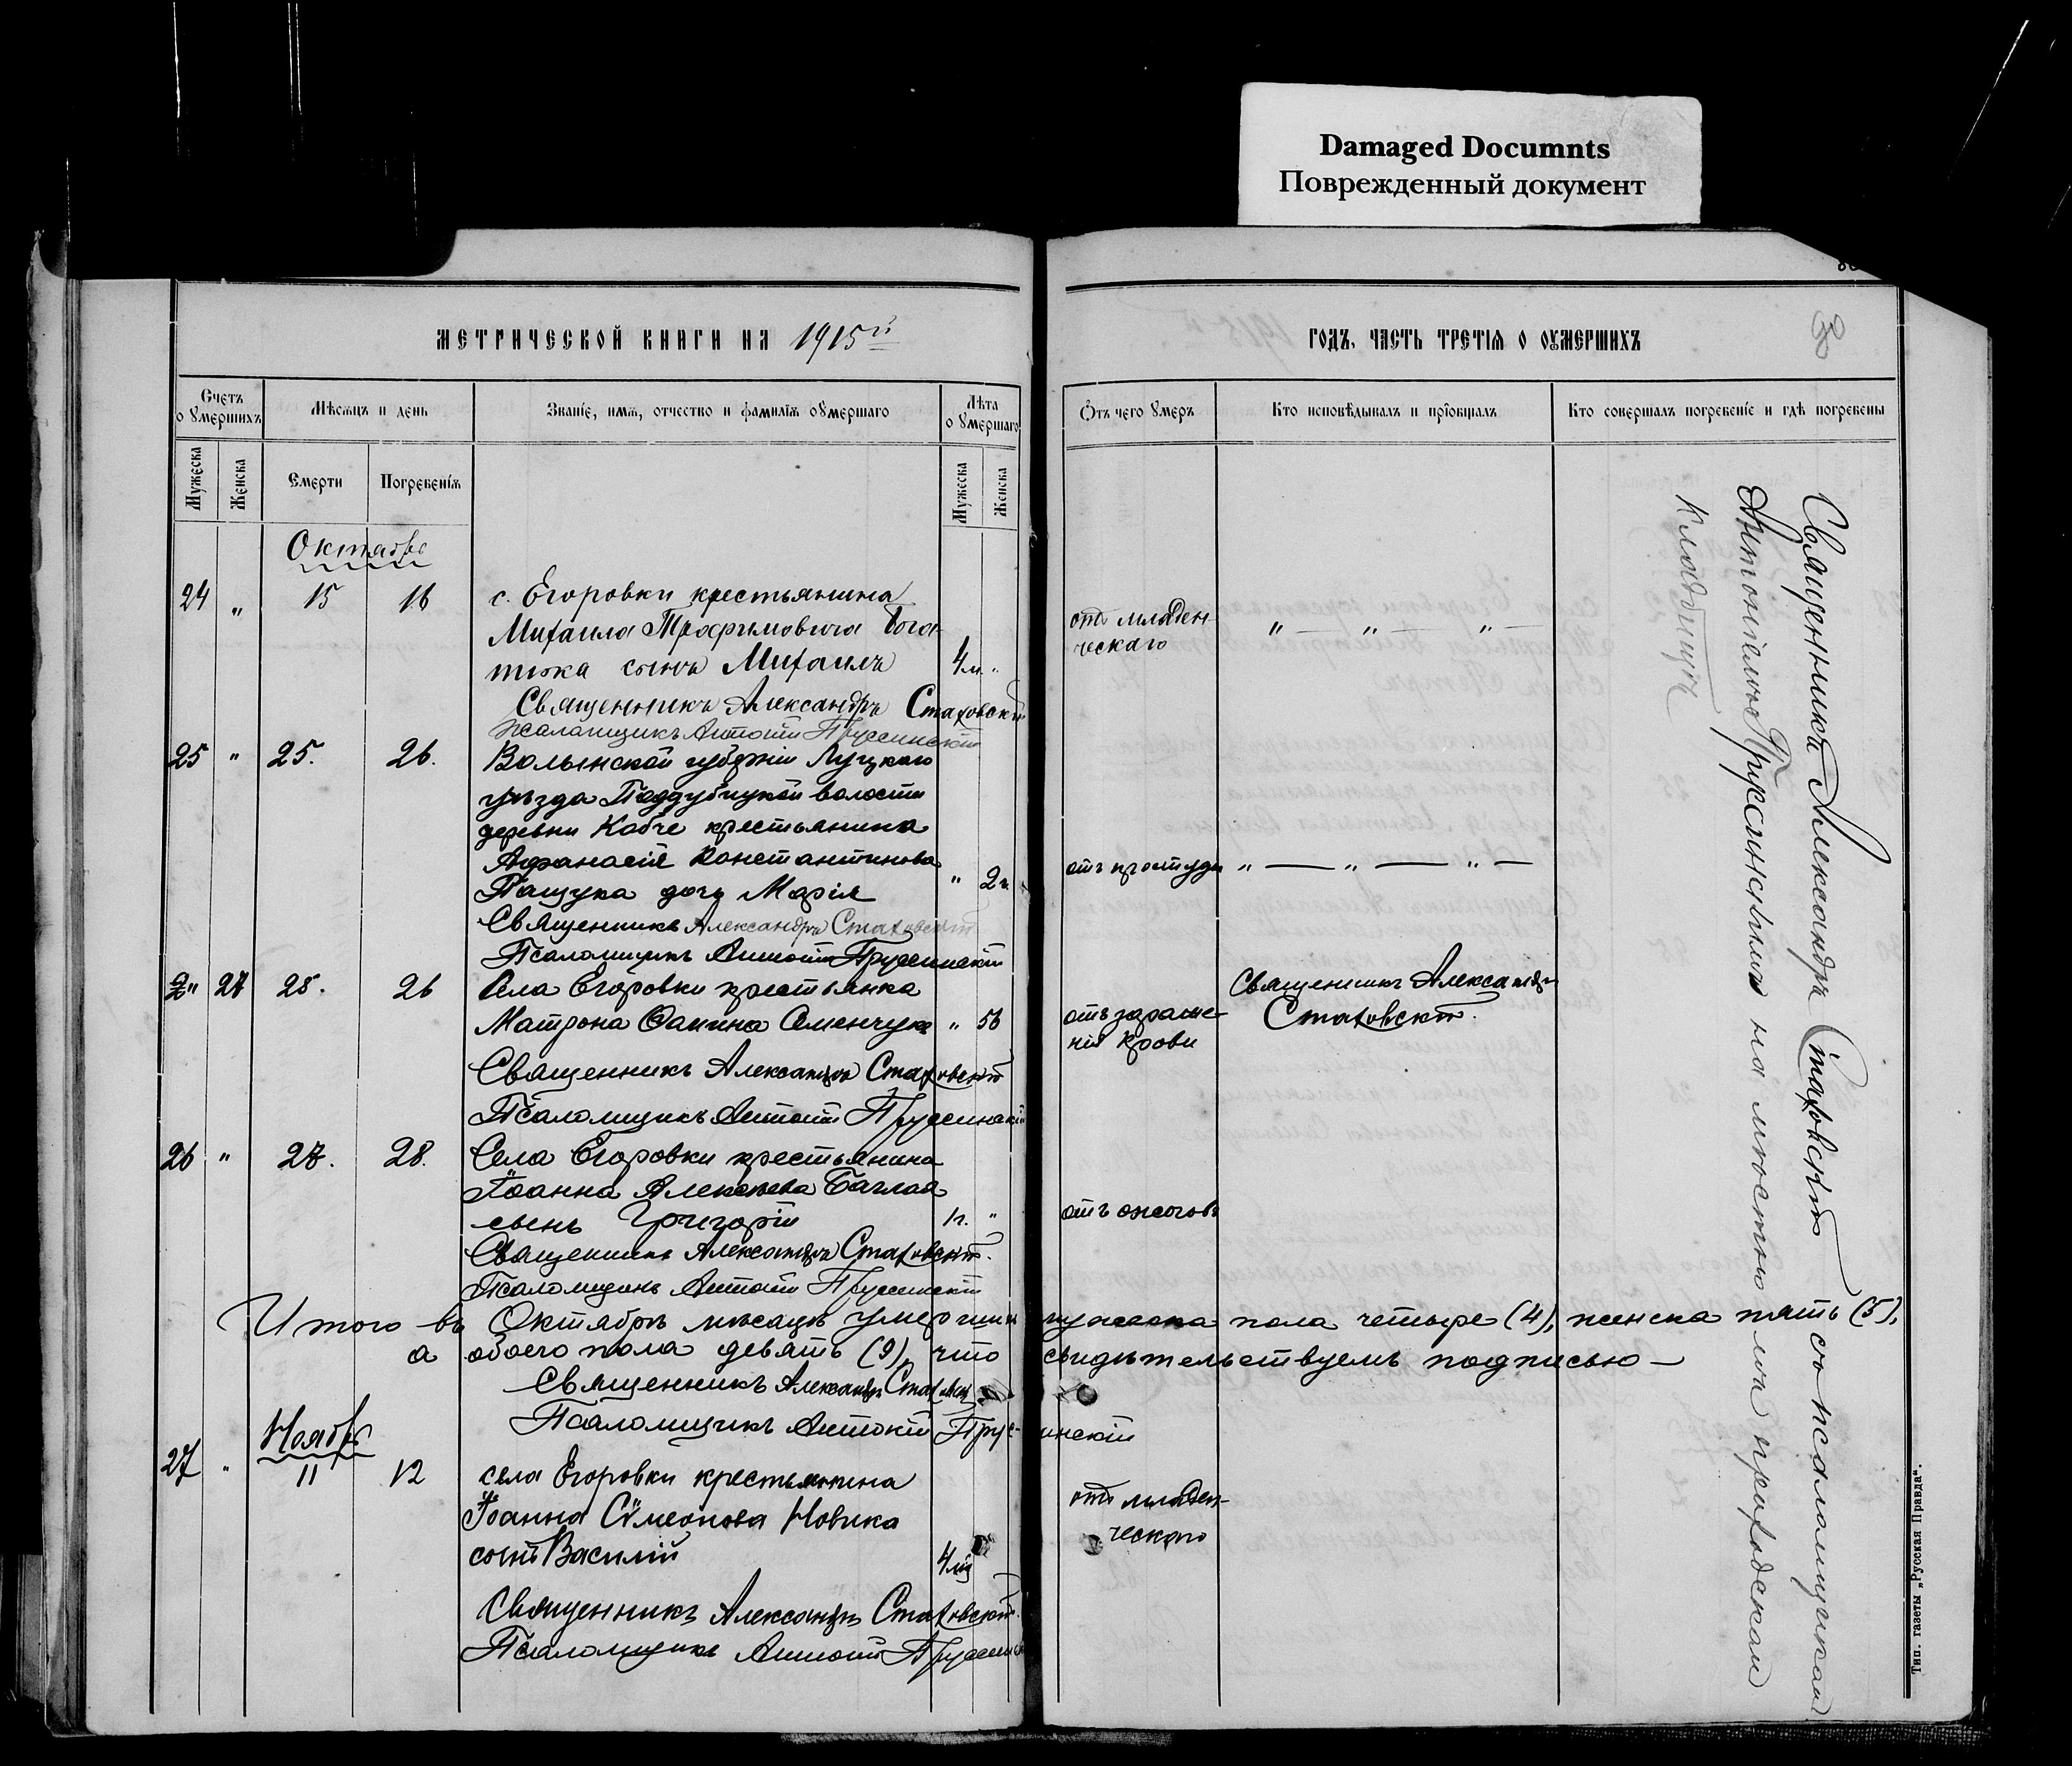 Damaged Documnts
Поврежденный документ
МЕТРИЧЕСКОЙ КНИГИ НА 1915й
ГОДЪ, ЧАСТЬ ТРЕТІЯ О ОУМЕРШИХЪ
Счетъ о умершихъ
Мѣсяцъ и день
Званіе, имя, отчество и фамилія оумершаго
Лѣта о умершаго
Отъ чего умеръ
Кто исповѣдывалъ и пріобщалъ
Кто совершалъ погребеніе и гдѣ погребены
Мужеска
Женска
Смерти
Погребенія
Мужеска
Женска
Октябрь
24 " 15 16 с. Егоровки крестьянина
Михаила Трофимовича
сынъ Михаилъ 4 м. "
отъ младен-
ческаго
" — " — " —
Священникъ Александръ Стаховскій
Псаломщикъ Антоній Пруссинскій
25 " 25. 26. Волынской губерніи Луцкаго
уѣзда Поддубецкой волости
деревни Кобче крестьянина
Афанасія Константинова
Пащука дочь Марія " 2 г.
отъ простуды " — " — " —
Священникъ Александръ Стаховскій
Псаломщикъ Антоній Пруссинскій
" 27 25. 26 Села Егоровки крестьянка
Матрона Семенчук " 56
отъ зараже-
нія крови
Священникъ Александръ
Стаховскій.
Священникъ Александръ Стаховскій
Псаломщикъ Антоній Пруссинскій
26 " 27. 28. Села Егоровки крестьянина
Іоанна Алексѣева Баглая
сынъ Григорій 1 г. "
отъ ожоговъ
Священникъ Александръ Стаховскій.
Псаломщикъ Антоній Пруссинскій
Итого въ Октябрѣ мѣсяцѣ умерших мужеска пола четыре (4), женска пять (5),
а обоего пола девять (9), что свидѣтельствуемъ подписью —
Священникъ Александръ Стаховскій
Псаломщикъ Антоній Прус-
инскій
Ноябрь
27 " 11 12 села Егоровки крестьянина
Іоанна Сѵмеонова Новика
сынъ Василій 4 м.
отъ младен-
ческаго
Священникъ Александръ Стаховскій.
Псаломщикъ Антоній Пруссинс
Священникъ Александръ Стаховскій со псаломщикомъ
Антоніемъ Пруссинскимъ на мѣстномъ приходскомъ
кладбищѣ
Тип. газеты „Русская Правда".